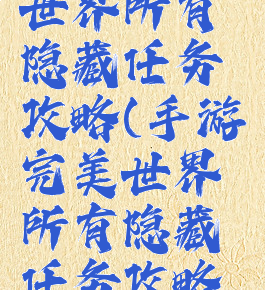 世界所有
隐藏任务
攻略(手游
完美世界
所有隐藏
任务攻略